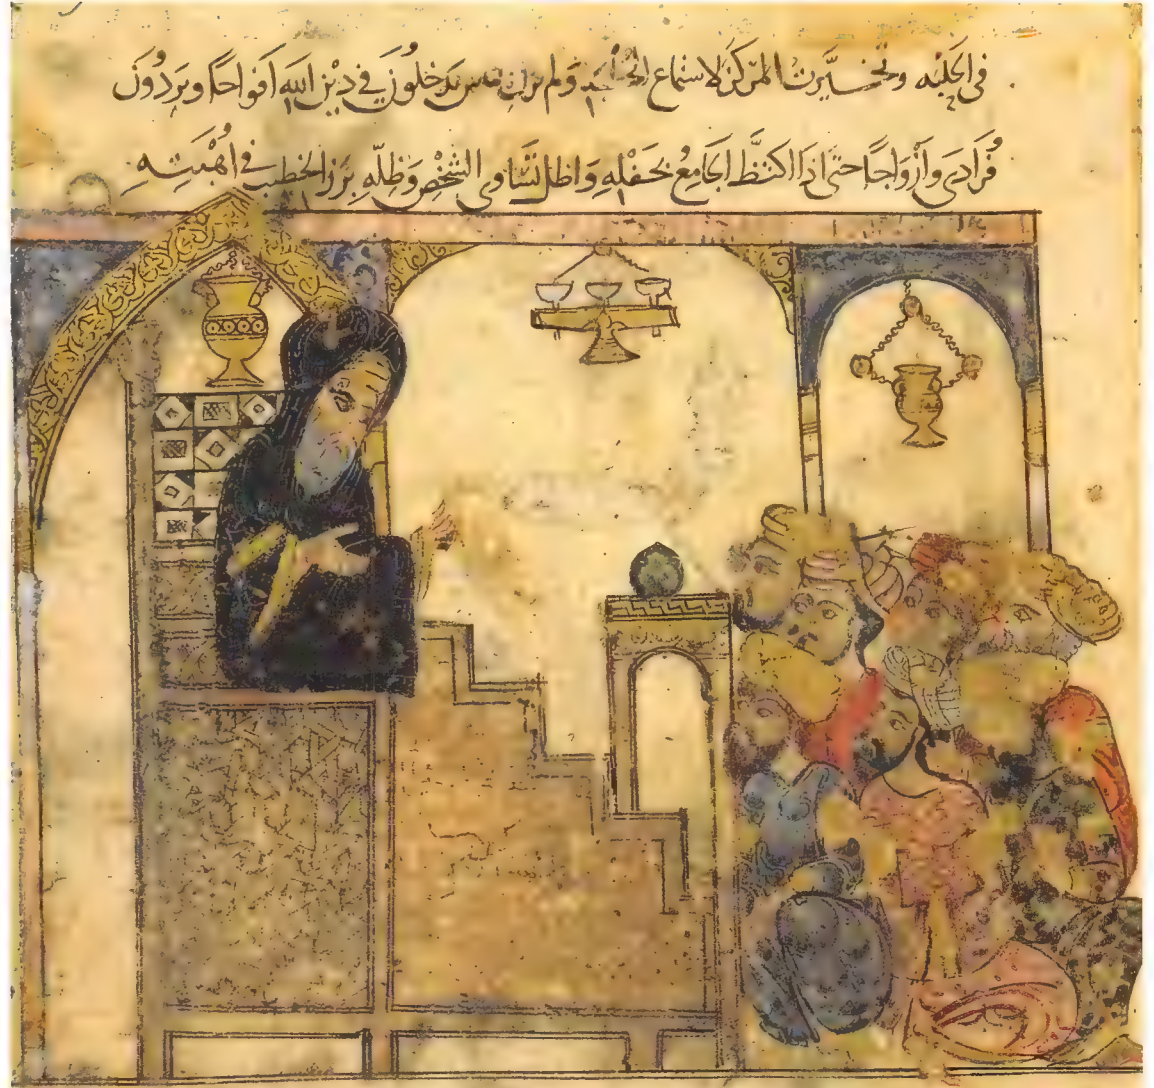 في الحلبه وتخيرت المركز لاستماع ولم يزل الناس يدخلون في دين الله افواجا ويردون
فرادى وازواجا حتى اذا اكتظ الجامع بحفله واظل تساوي الشخص وظله برز الخطيب في اهبته